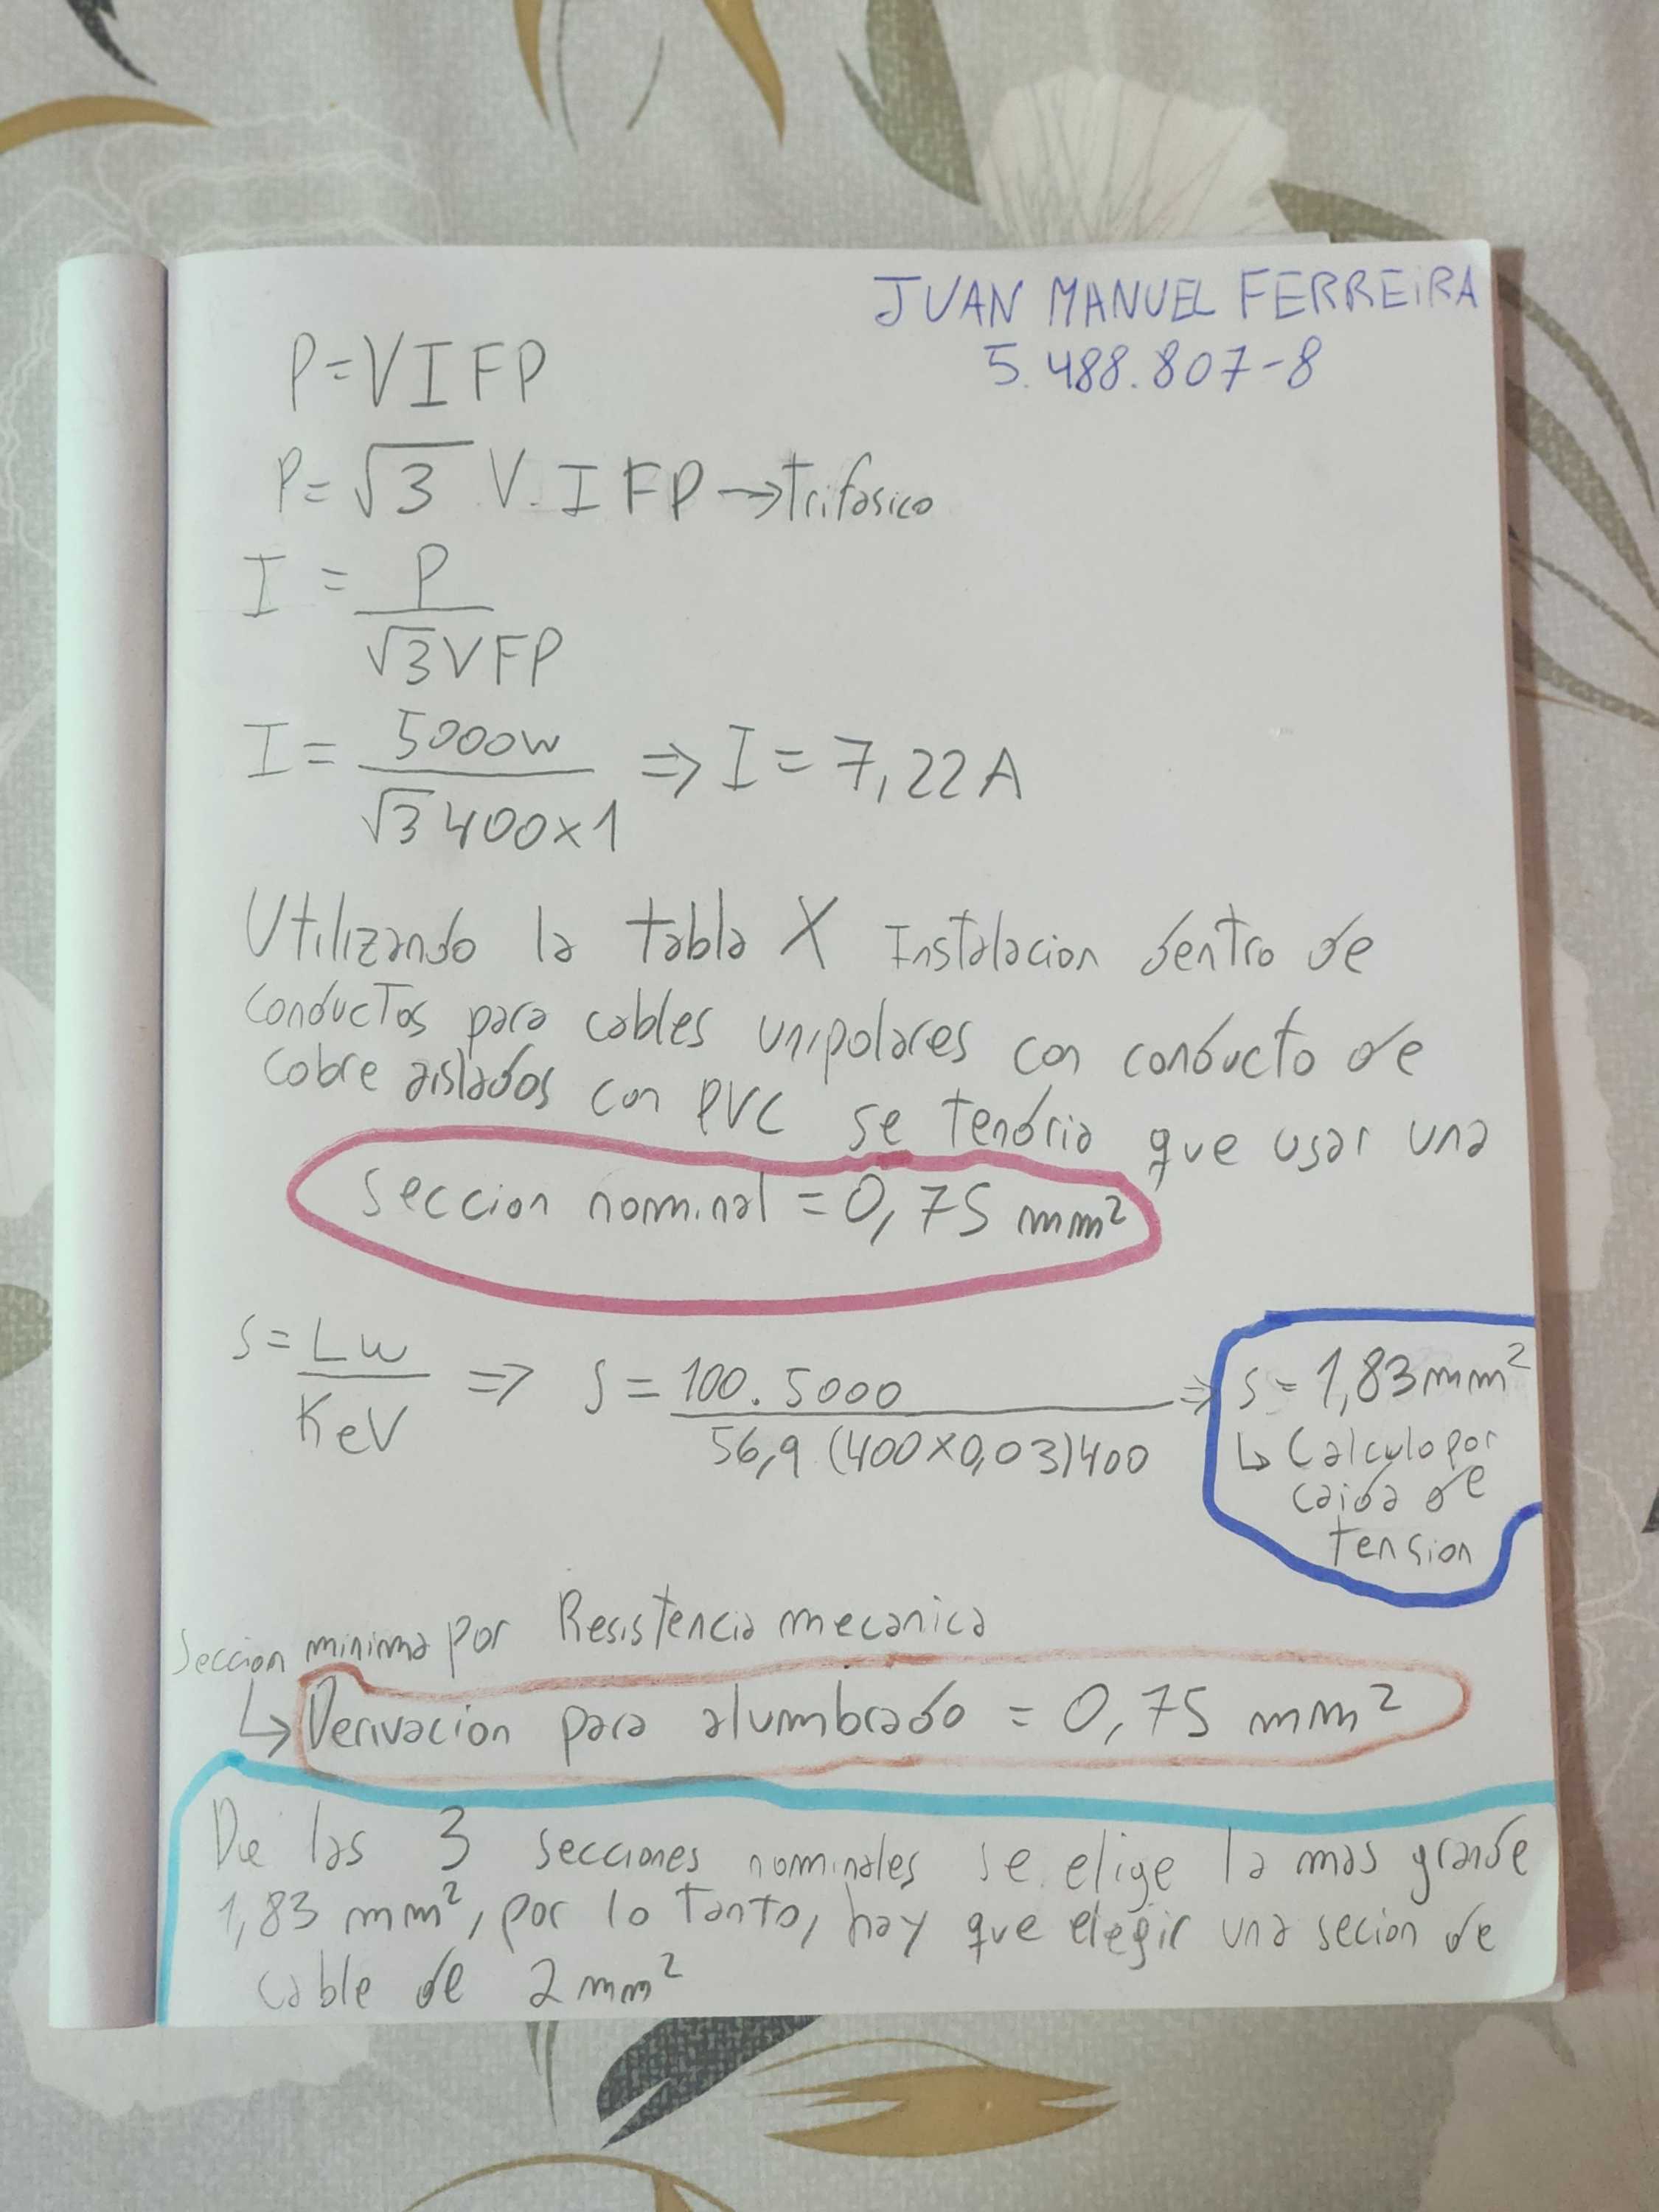 JUAN MANUEL FERREIRA
5.488.807-8
P=VIFP
P=√3 V.I FP→Trifasico
I = P / √3VFP
I = 5000w / √3 400x1 ⇒ I = 7,22A
Utilizando la tabla X Instalacion dentro de
conductos para cables unipolares con conducto de
cobre aislados con PVC se tendria que usar una
seccion nominal = 0,75 mm²
S = LW / KeV ⇒ S = 100.5000 / 56,9 (400x0,03)400 ⇒ S = 1,83mm²
↳ Calculo por
caida de
tension
Seccion minima por Resistencia mecanica
↳ Derivacion para alumbrado = 0,75 mm²
De las 3 secciones nominales se elige la mas grande
1,83 mm², por lo tanto, hay que elegir una secion de
cable de 2 mm²